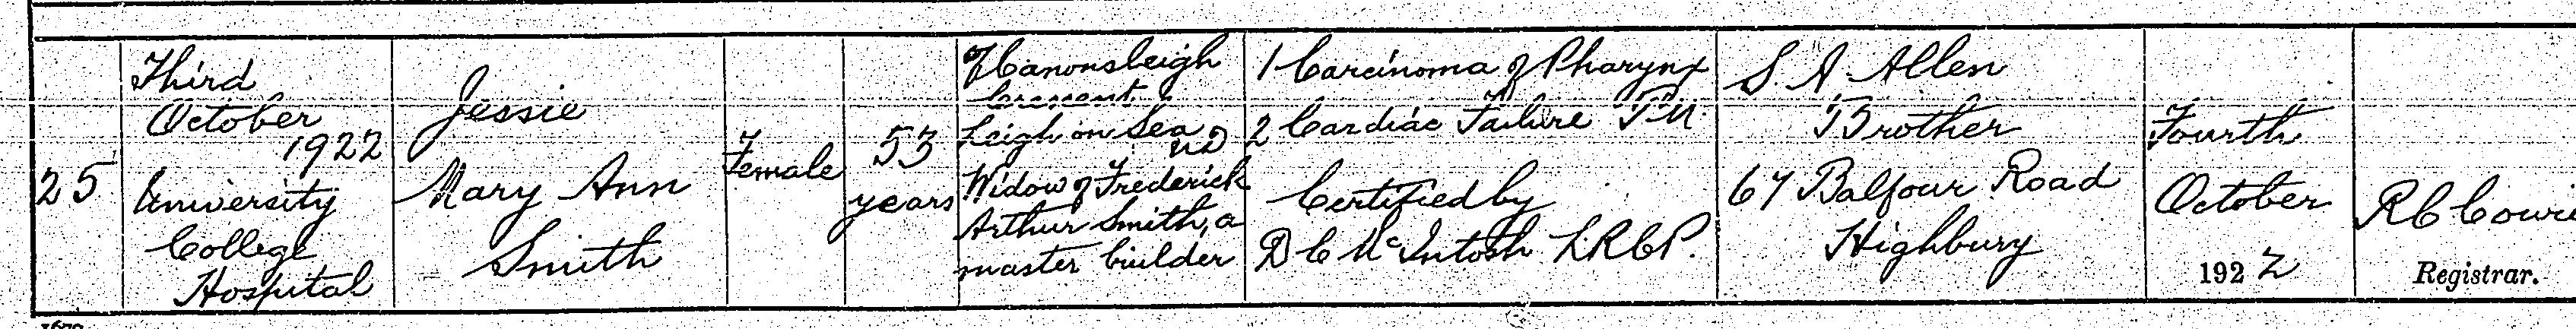 25
Third
October
1922
University
College
Hospital
Jessie
Mary Ann
Smith
Female
53
years
Of Canonsleigh
Crescent
Leigh on Sea
UD
Widow of Frederick
Arthur Smith, a
master builder
1 Carcinoma of Pharynx
2 Cardiac Failure P.M.
Certified by
D C McIntosh LRCP.
S. A. Allen
Brother
67 Balfour Road
Highbury
Fourth
October
1922
R C
Registrar.